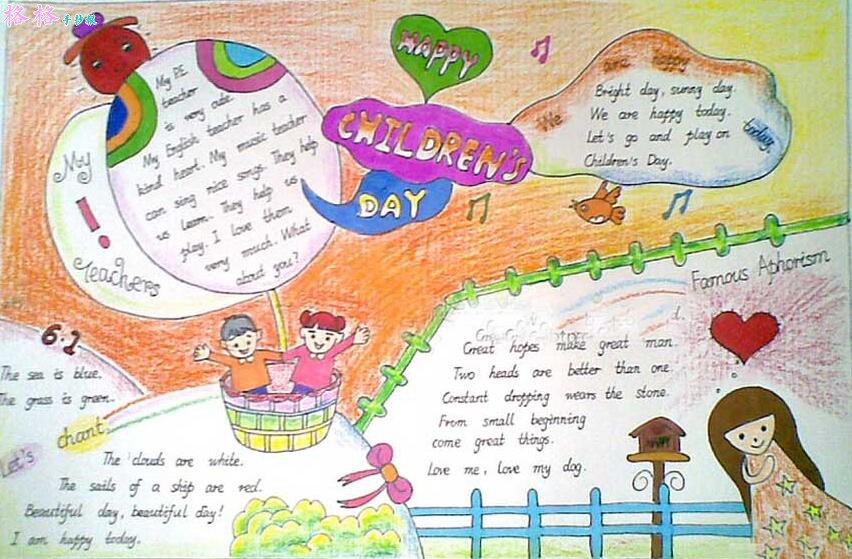 格格手抄报
HAPPY
CHILDREN'S
DAY
My
Teachers
My P.E
teacher
is very cute.
My English teacher has a
kind heart. My music teacher
can sing nice songs. They help
us learn. They help us
play. I love them
very much. What
about you?
We are happy today
Bright day, sunny day.
We are happy today.
Let's go and play on
Children's Day.
Famous Aphorism
Great hopes make great man.
Two heads are better than one.
Constant dropping wears the stone.
From small beginning
come great things.
Love me, love my dog.
HAPPY
6.1
The sea is blue.
The grass is green.
Let's chant
The clouds are white.
The sails of a ship are red.
Beautiful day, beautiful day!
I am happy today.